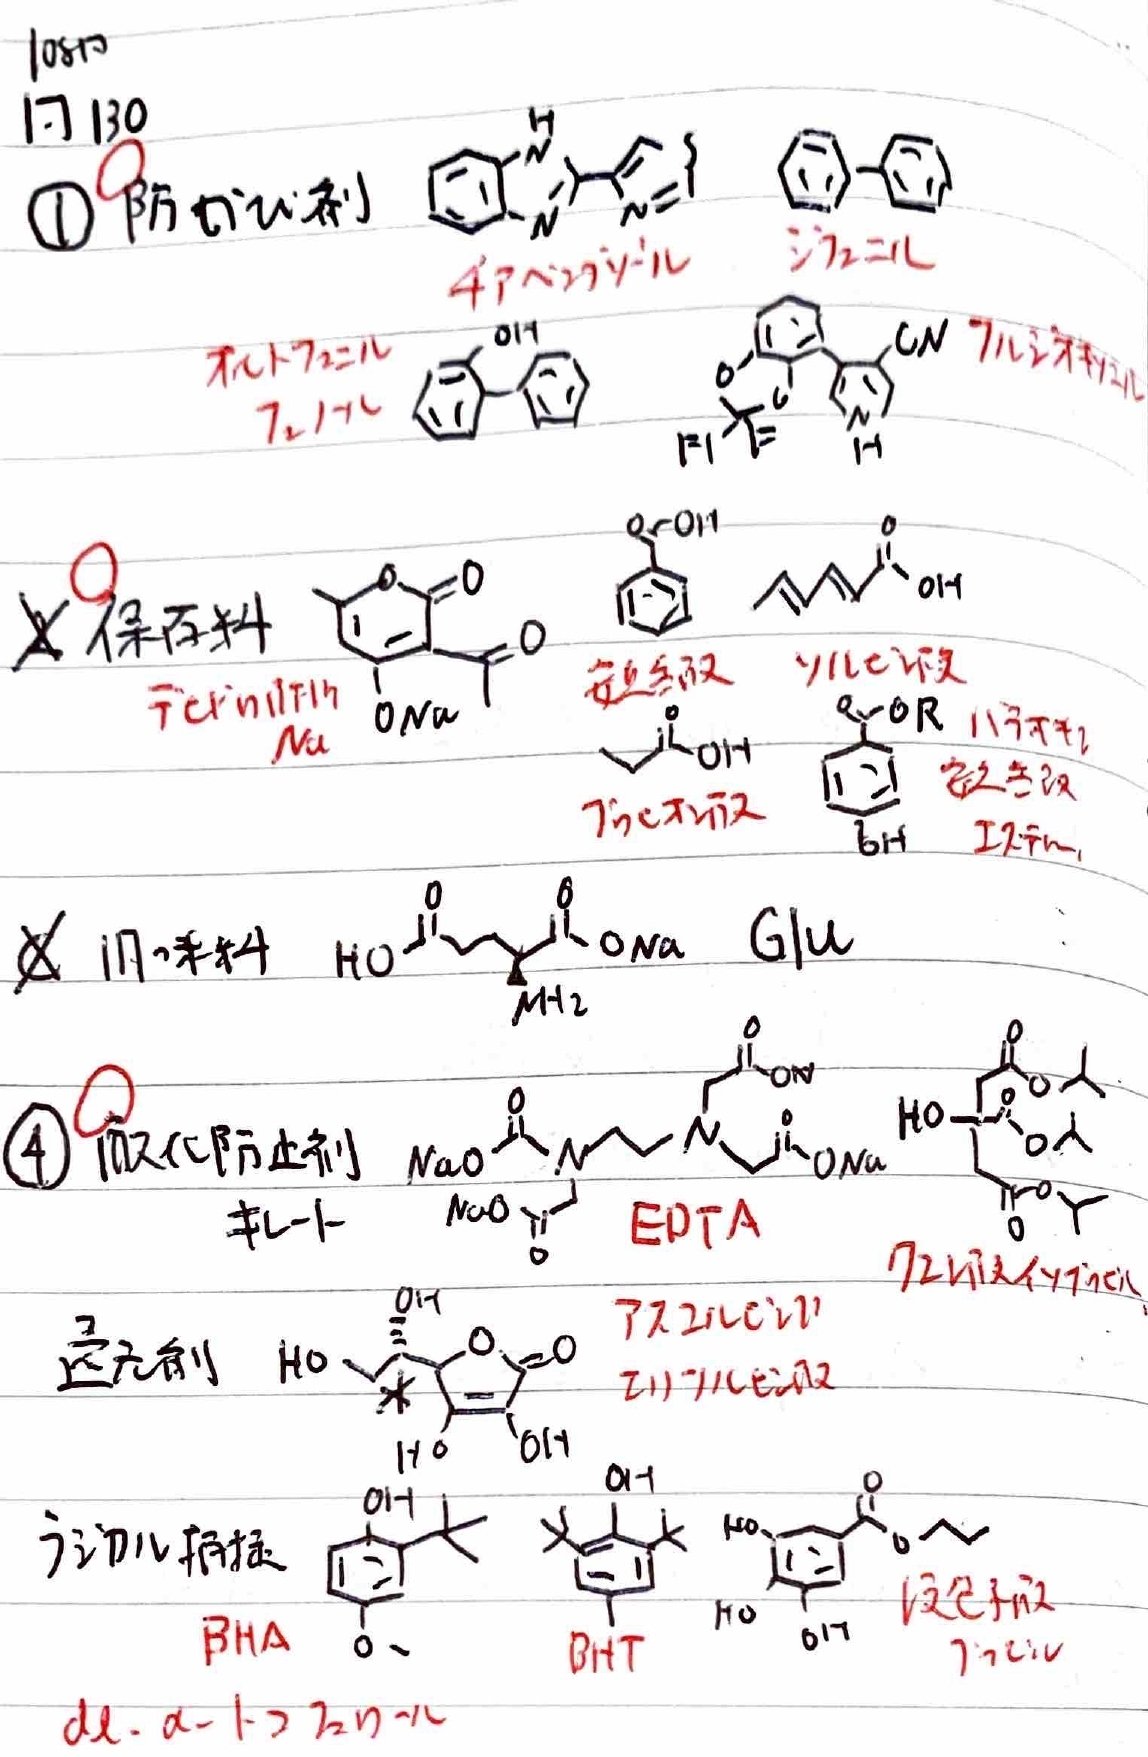 108回
問130
① 防かび剤
チアベンダゾール
ジフェニル
オルトフェニル
フェノール
OH
CN
フルジオキソニル
保存料
デヒドロ酢酸
Na
ONa
安息香酸
OH
ソルビン酸
OH
プロピオン酸
OH
パラオキシ
安息香酸
エステル
OR
OH
調味料
HO
ONa
NH2
Glu
④ 酸化防止剤
キレート
NaO
NaO
N
N
ON
ONa
EDTA
HO
クエン酸イソプロピル
還元剤
HO
OH
O
O
HO
OH
アスコルビン酸
エリソルビン酸
ラジカル捕捉
OH
BHA
OH
BHT
HO
HO
OH
没食子酸
プロピル
dl-α-トコフェロール